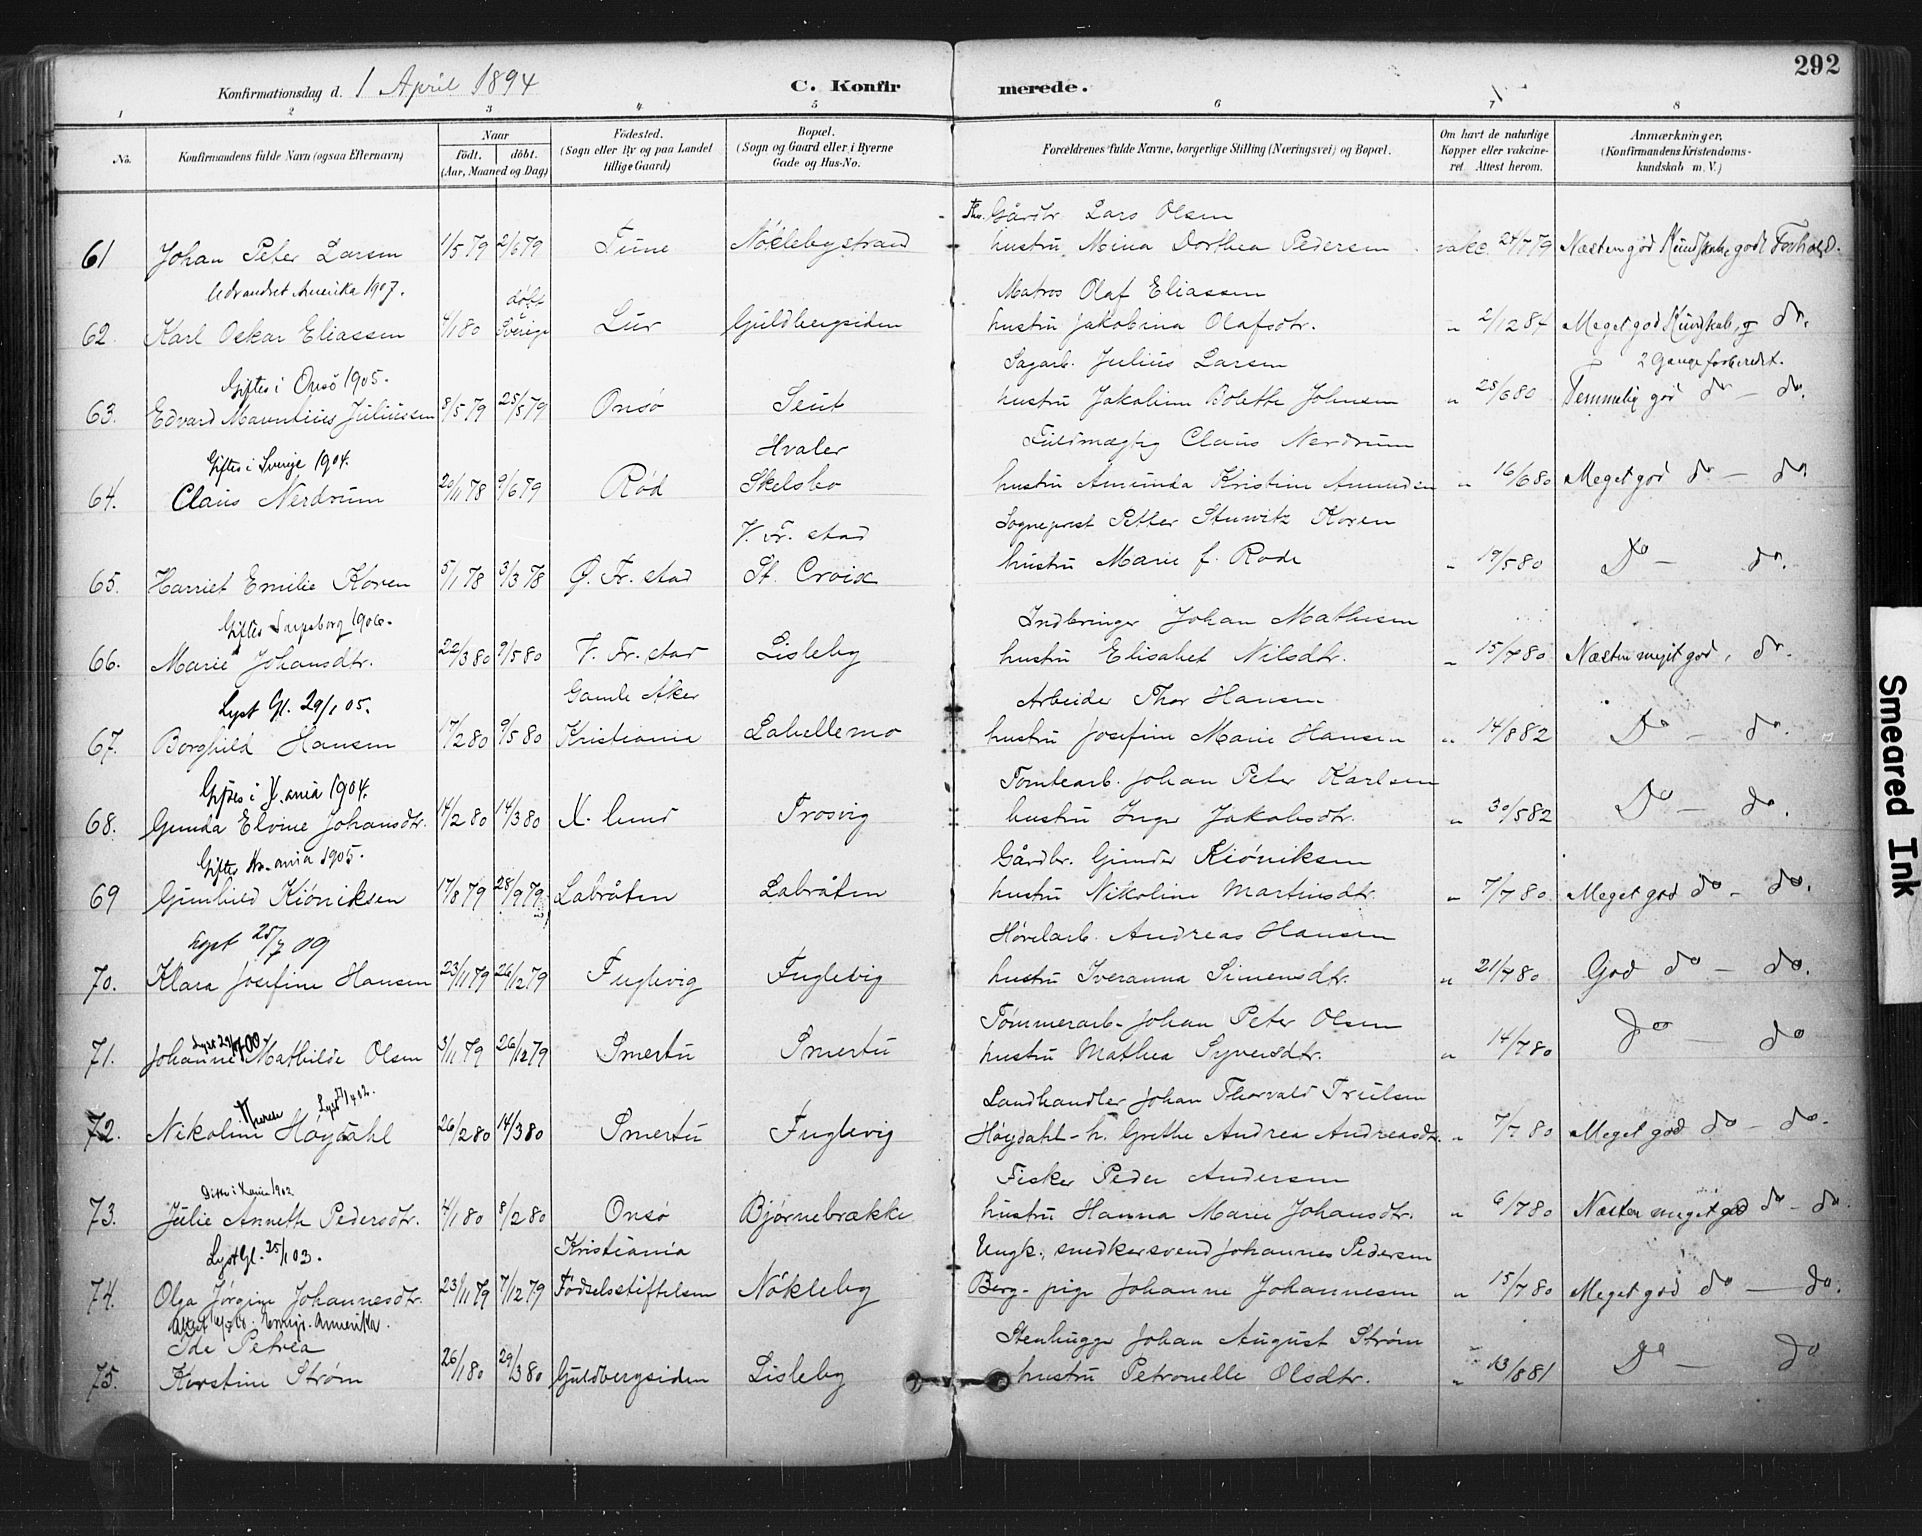 292
Konfirmationsdag d. 1 April 1894
C. Konfirmerede.
1 2 3 4 5 6 7 8
No.
Konfirmandens fulde Navn (ogsaa Efternavn)
Naar
født. døbt.
(Aar, Maaned og Dag)
Fødested.
(Sogn eller By og paa Landet
tillige Gaard)
Bopæl.
(Sogn og Gaard eller i Byerne
Gade og Hus-No.
Forældrenes fulde Navne, borgerlige Stilling (Næringsvei) og Bopæl.
Om havt de naturlige
Kopper eller vakcine-
ret. Attest herom.
Anmærkninger.
(Konfirmandens Kristendoms-
kundskab m. V.)
Gårdbr. Lars Olsen
61 Johan Peter Larsen 1/5 79 2/6 79 Tune Nöklebystrand hustru Mina Dorthea Pedersen vakc. 24/7 79 Næsten god Kundskab, godt Forhold.
Udvandret Amerika 1907.
døbt i Sverige
Matros Olaf Eliassen
62. Karl Oskar Eliassen 4/1 80 Lur Guldbergsiden hustru Jakobina Olafsdtr. " 2/12 84 Meget god Kundskab, g do.
2 Gange forberedt.
Giftes i Onsö 1905.
Sagarb. Julius Larsen
63. Edvard Mauritius Juliussen 8/5 79 25/5 79 Onsö Seut hustru Jakobine Bolette Johnsen " 28/6 80 Temmelig god do — do.
Giftes i Sverige 1904.
Hvaler
Fuldmægtig Claus Nerdrum
64. Claus Nerdrum 20/11 78 9/6 79 Röd Skelsbo hustru Amunda Kristine Amundsen " 16/6 80 Meget god do — do
V. Fr. stad
Sogneprest Petter Stuwitz Koren
65. Harriet Emilie Koren 5/1 78 3/3 78 Ø. Fr. stad St. Croix hustru Marie f. Rode " 19/5 80 Do — do.
Giftes Sarpsborg 1906.
Indbringer Johan Mathisen
66. Marie Johansdtr. 22/3 80 9/5 80 V. Fr. stad Lisleby hustru Elisabet Nilsdtr. " 15/7 80 Næsten meget god, do.
Lyst Gl. 29/1 05.
Gamle Aker
Arbeider Thor Hansen
67. Borghild Hansen 17/2 80 9/5 80 Kristiania Labellemo hustru Josefine Marie Hansen " 14/8 82 Do — do.
Giftes i X.ania 1904.
Tomtearb. Johan Peter Karlsen
68. Gunda Elvine Johansdtr. 14/2 80 14/3 80 X. lund Trosvig hustru Inger Jakobsdtr. " 30/5 82 Do — do.
Giftes Kr.ania 1905.
Gårdbr. Gunder Kiöniksen
69 Gunhild Kiöniksen 17/8 79 28/9 79 Labråten Labråten hustru Nikoline Martinsdtr. " 7/7 80 Meget god do — do.
Lyst 25/7 09
Høvelarb. Andreas Hansen
70. Klara Josefine Hansen 23/11 79 26/12 79 Fuglevig Fuglevig hustru Iveranna Simensdtr. " 21/7 80 God do — do.
Tømmerarb. Johan Peter Olsen
71. Johanne Mathilde Olsen 3/11 79 26/12 79 Smertu Smertu hustru Mathea Syversdtr. " 14/7 80 do — do
Landhandler Johan Thorvald Trulsen
72. Nikoline Høydahl 26/2 80 14/3 80 Smertu Fuglevig Høydahl - h. Grethe Andrea Andreasdtr. " 7/7 80 Meget god do — do.
Fisker Peder Andersen
73. Julie Annette Pedersdtr. 4/1 80 8/2 80 Onsø Bjørnebrække hustru Hanna Marie Johansdtr. " 6/7 80 Næsten meget god do — do.
Lyst Gl. 25/1 03.
Kristiania
Ungk. snedkersvend Johannes Pedersen
74. Olga Jørgine Johannesdtr. 23/11 79 7/12 79 Fødselsstiftelsen Nökleby Berg - pige Johanne Johannesen " 15/7 80 Meget god do — do.
Emigr. Amerika.
Ida Petrea
Stenhugger Johan August Strøm
75. Kirstine Strøm 26/1 80 29/3 80 Guldbergsiden Lisleby hustru Petronelle Olsdtr. " 13/8 81 Do — do
Smeared Ink